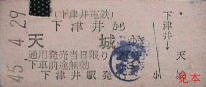 (下津井電鉄)
下津井から
天城
通用発売当日限り
下車前途無効
下津井駅発行
下津井
天城
小
45.4.29
見本